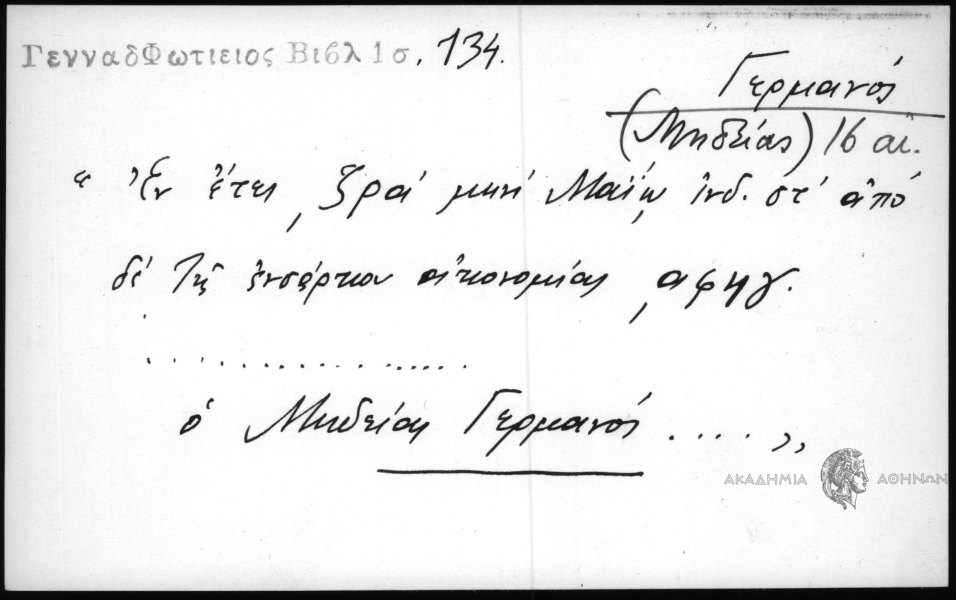 ΓενναδΦωτιειος Βιβλ 1σ. 134.
Γερμανός
(Μηδείας) 16 αι.
"Ἐν ἔτει ͵ζρα΄ μηνὶ Μαΐῳ ἰνδ. στ΄ ἀπὸ
δὲ τῆς ἐνσάρκου οἰκονομίας ͵αφηγ.
. . . . . . . . . . . . . . . .
ὁ Μηδείας Γερμανός . . . . "
ΑΚΑΔΗΜΙΑ ΑΘΗΝΩΝ